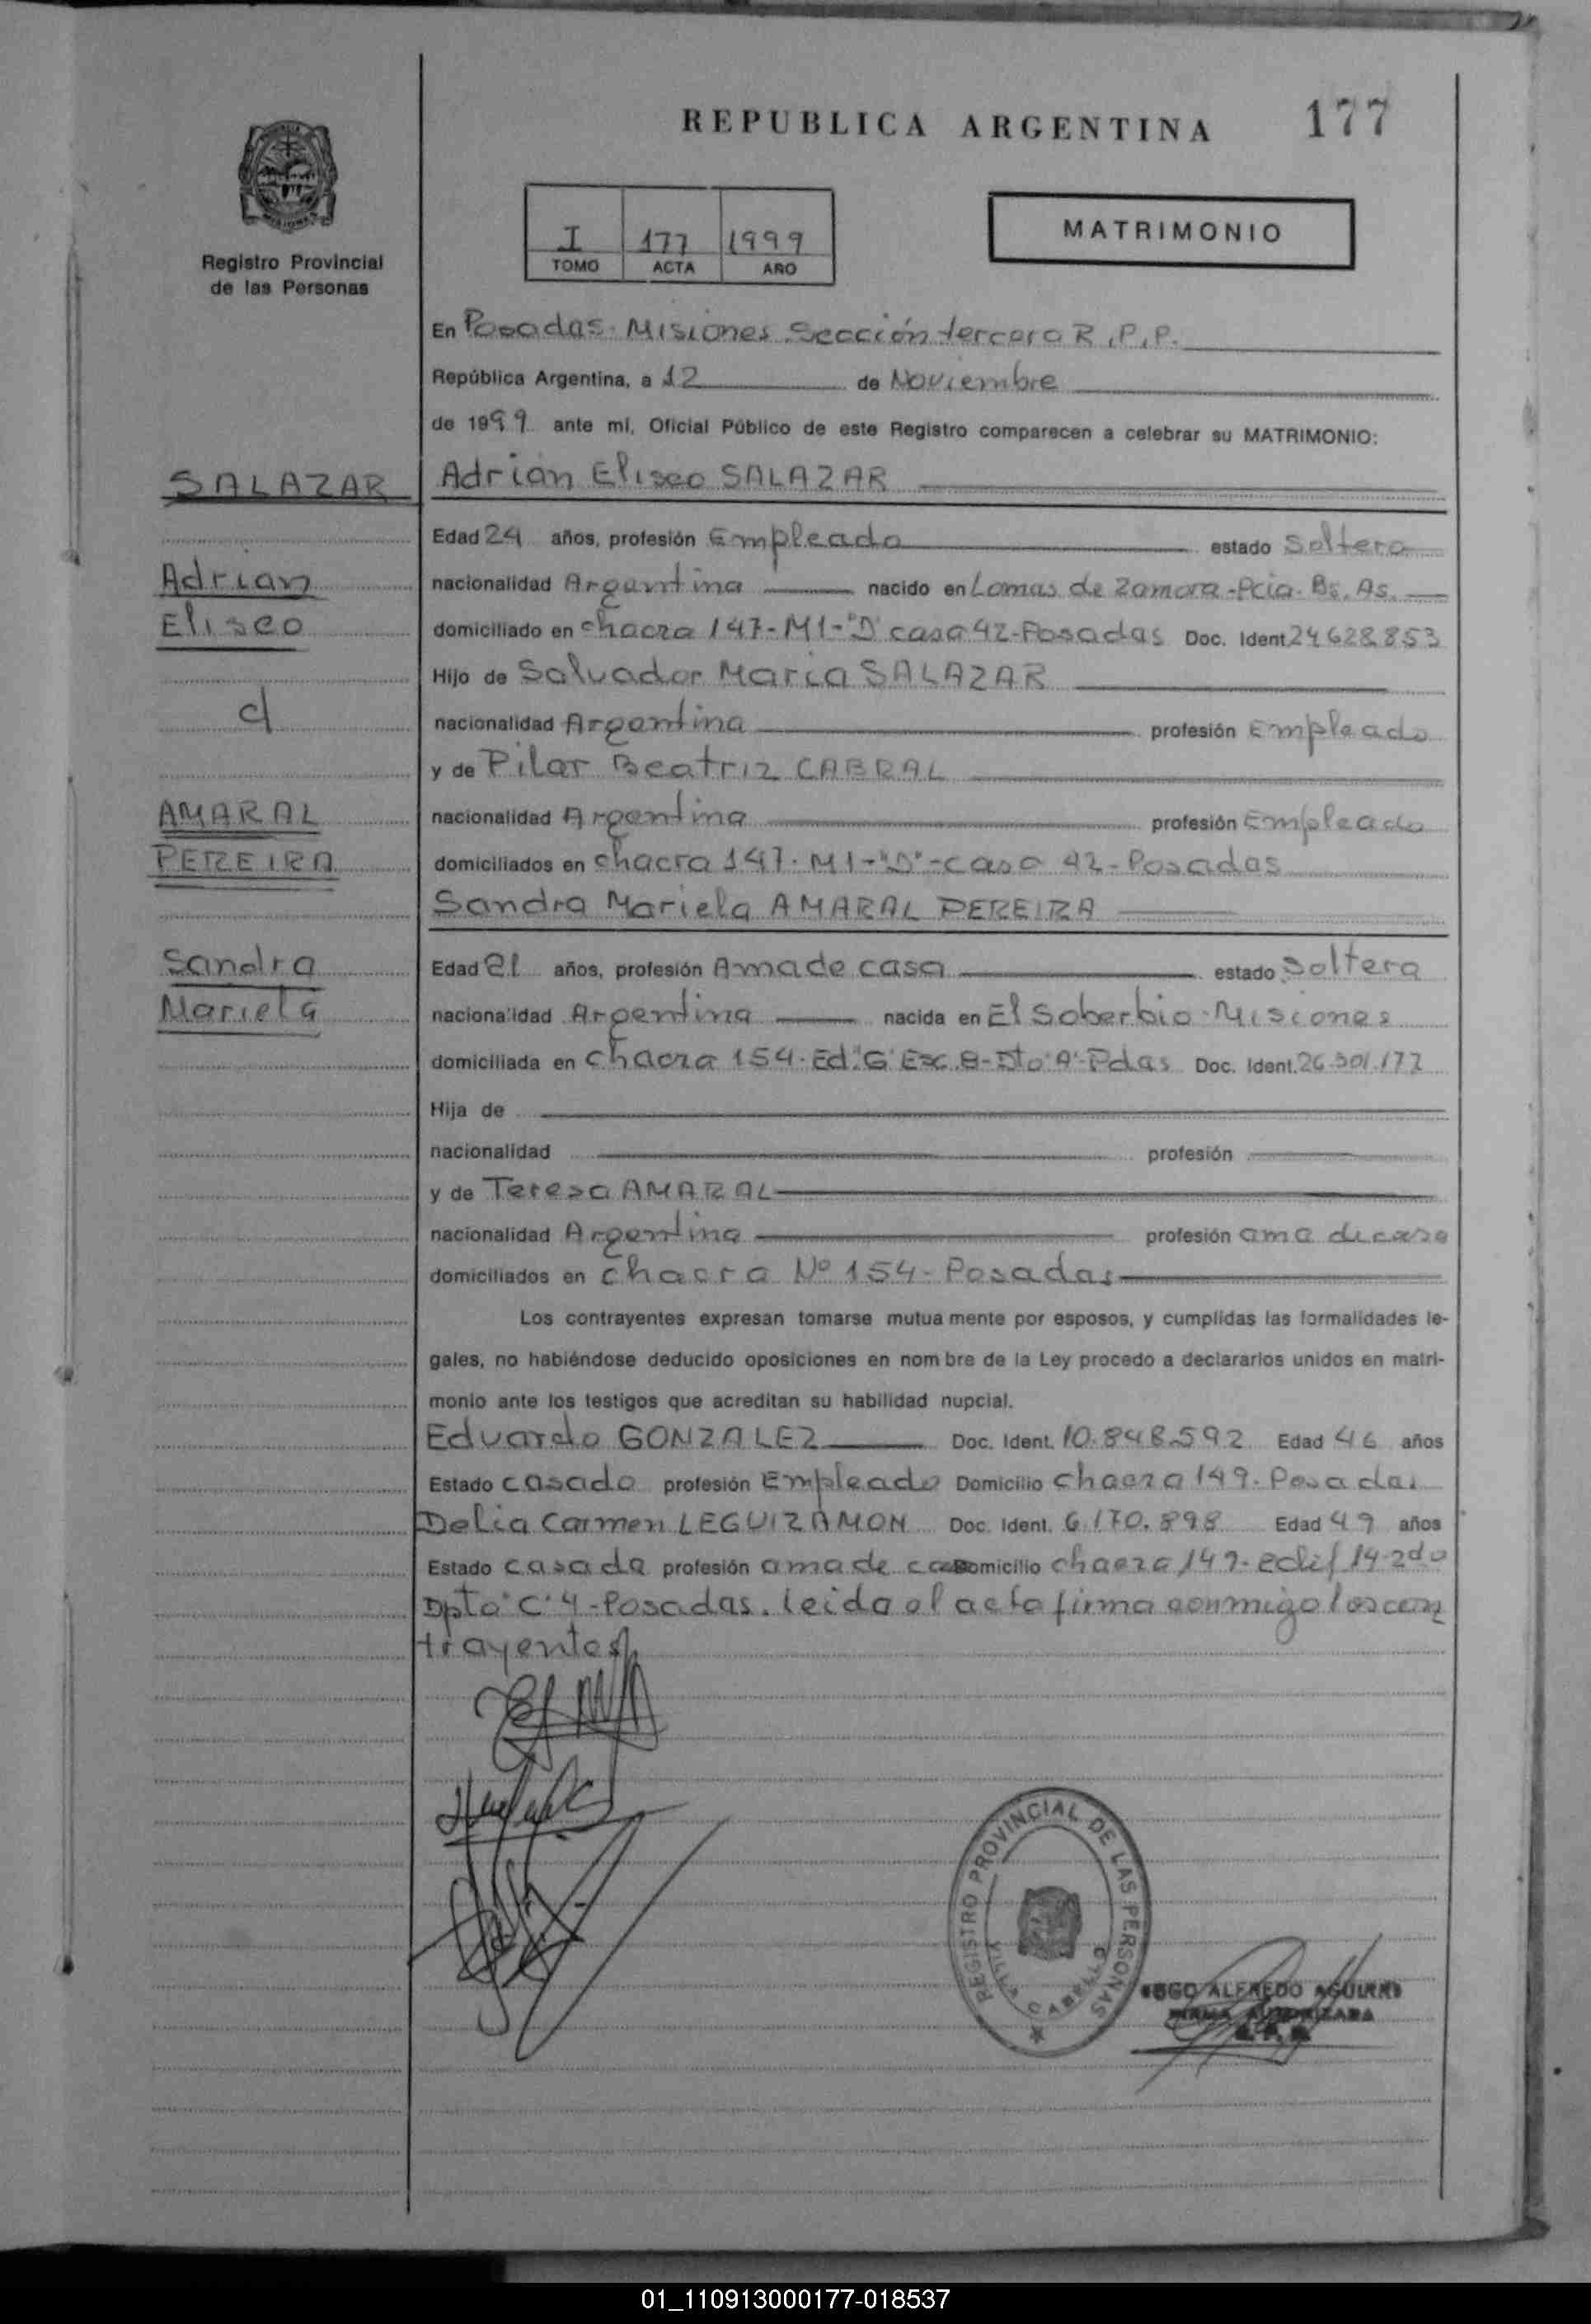 REPUBLICA ARGENTINA 177
Registro Provincial
de las Personas
I 177 1999
TOMO ACTA AÑO
MATRIMONIO
En Posadas. Misiones. Sección tercera R.P.P.
República Argentina, a 12 de Noviembre
de 1999 ante mi, Oficial Público de este Registro comparecen a celebrar su MATRIMONIO:
SALAZAR
Adrian Eliseo SALAZAR
Edad 24 años, profesión Empleado estado Soltero
Adrian
nacionalidad Argentina nacido en Lomas de Zamora-Pcia. Bs. As.
Eliseo
domiciliado en chacra 147-M1-"D" casa 42-Posadas Doc. Ident. 24628853
Hijo de Salvador Maria SALAZAR
nacionalidad Argentina profesión Empleado
y de Pilar Beatriz CABRAL
AMARAL
nacionalidad Argentina profesión Empleada
PEREIRA
domiciliados en chacra 147. M1-"D"-casa 42-Posadas
Sandra Mariela AMARAL PEREIRA
Sandra
Edad 21 años, profesión Ama de casa estado Soltera
Mariela
nacionalidad Argentina nacida en El Soberbio-Misiones
domiciliada en chacra 154. Ed."G" Esc. 8-Dto "A"-Pdas Doc. Ident. 26.301.177
Hija de
nacionalidad profesión
y de Teresa AMARAL
nacionalidad Argentina profesión ama de casa
domiciliados en chacra Nº 154-Posadas
Los contrayentes expresan tomarse mutua mente por esposos, y cumplidas las formalidades le-
gales, no habiéndose deducido oposiciones en nom bre de la Ley procedo a declararlos unidos en matri-
monio ante los testigos que acreditan su habilidad nupcial.
Eduardo GONZALEZ Doc. Ident. 10.848.592 Edad 46 años
Estado casado profesión Empleado Domicilio chacra 149-Posadas
Delia Carmen LEGUIZAMON Doc. Ident. 6.170.898 Edad 49 años
Estado casada profesión ama de casa Domicilio chacra 149-edif 14-2do
Dpto "C" 4-Posadas. leida el acta firma conmigo los con
trayentes
REGISTRO PROVINCIAL DE LAS PERSONAS
VILLA CABELLO
ALFREDO AGUIRRE
FIRMA AUTORIZADA
01_110913000177-018537